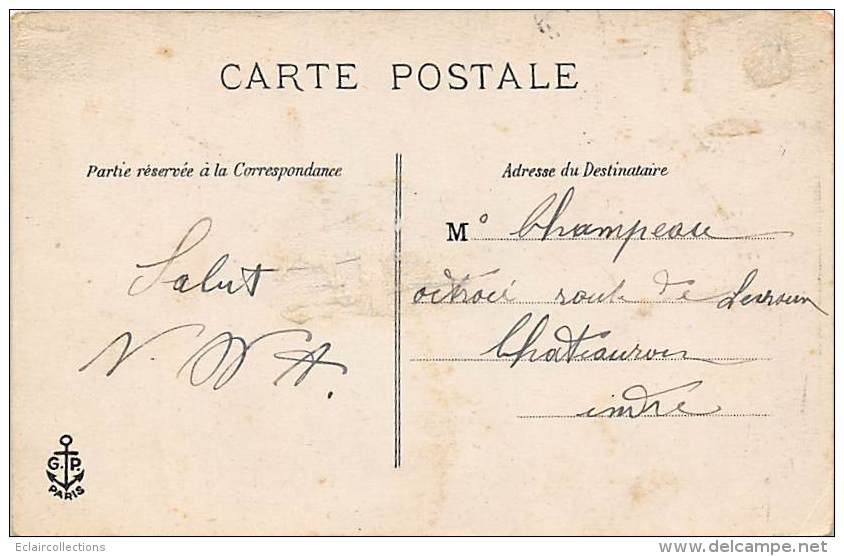 CARTE POSTALE
Partie réservée à la Correspondance
Adresse du Destinataire
Salut
N. W A.
Mo Champeau
octroié route de Levroux
Chateauroux
indre
G. P.
PARIS
Eclaircollections
www.delcampe.net